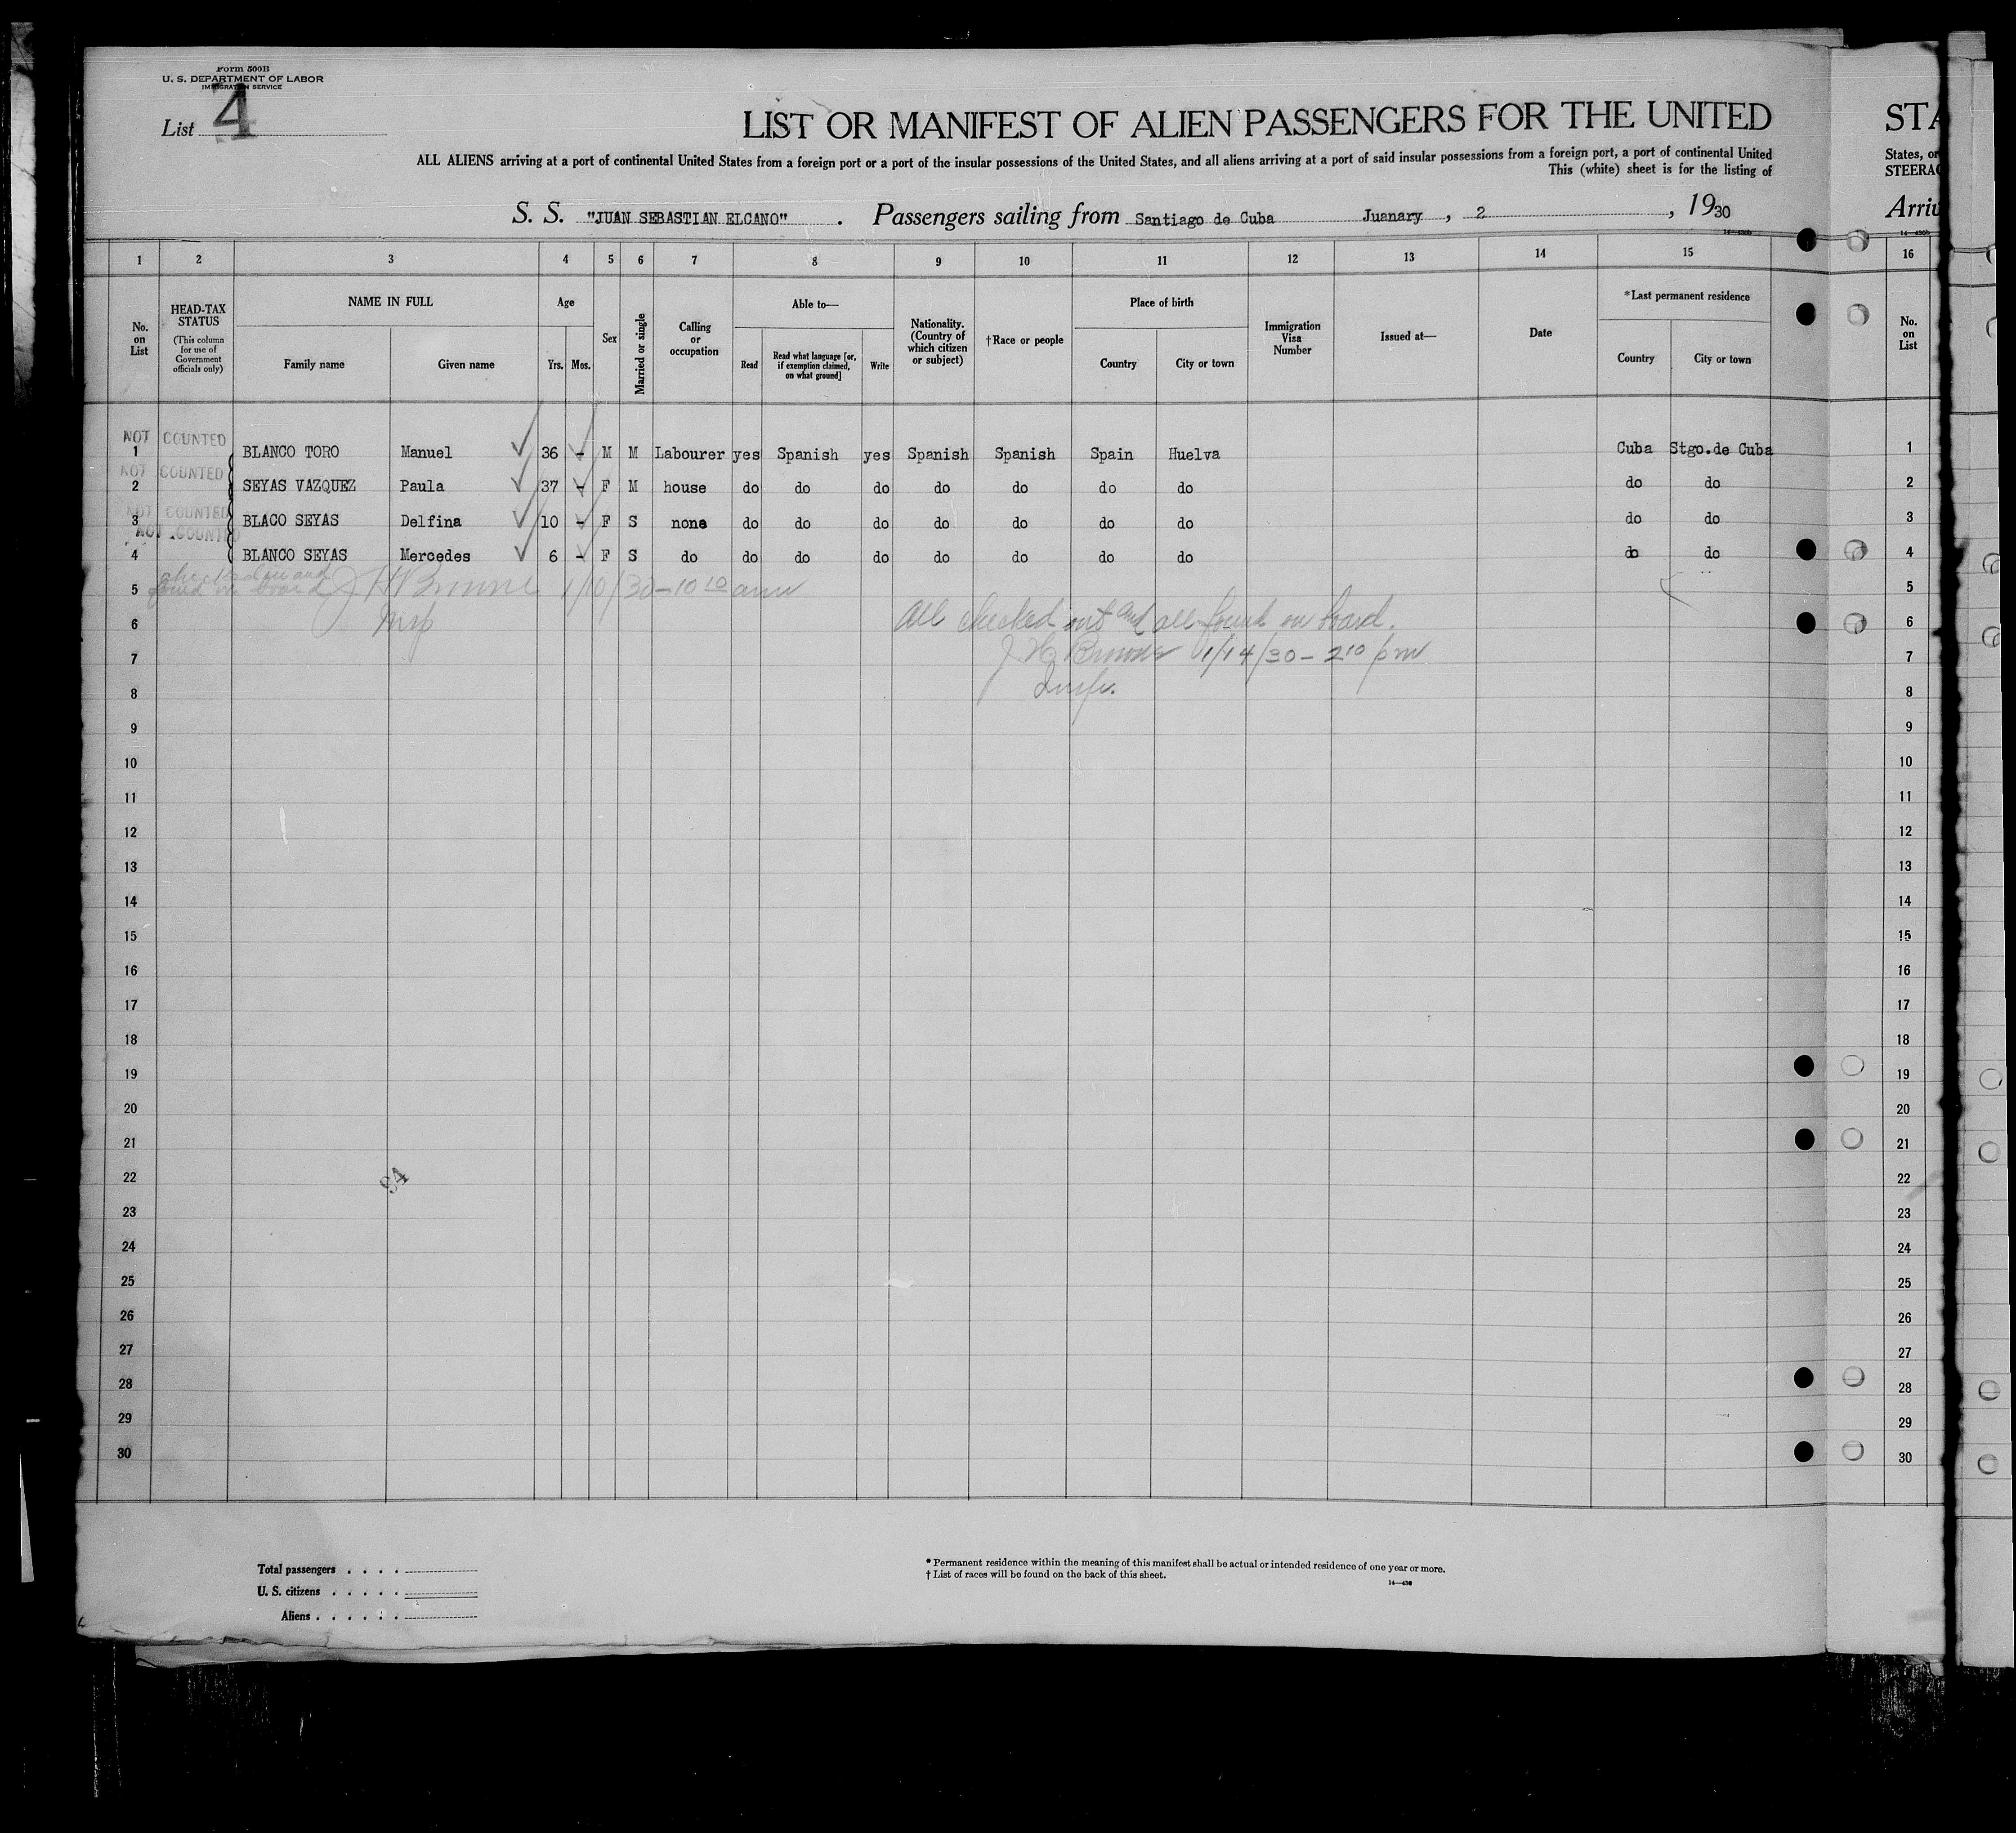 Form 500B
U. S. DEPARTMENT OF LABOR
IMMIGRATION SERVICE
List 4
LIST OR MANIFEST OF ALIEN PASSENGERS FOR THE UNITED
STA
ALL ALIENS arriving at a port of continental United States from a foreign port or a port of the insular possessions of the United States, and all aliens arriving at a port of said insular possessions from a foreign port, a port of continental United
States, or
This (white) sheet is for the listing of
STEERAG
S. S. "JUAN SEBASTIAN ELCANO" . Passengers sailing from Santiago de Cuba Juanary , 2 , 1930
Arriv
14—430b
1 2 3 4 5 6 7 8 9 10 11 12 13 14 15 16
No. on List
HEAD-TAX STATUS
(This column for use of Government officials only)
NAME IN FULL
Family name Given name
Age
Yrs. Mos.
Sex
Married or single
Calling or occupation
Able to—
Read
Read what language [or, if exemption claimed, on what ground]
Write
Nationality. (Country of which citizen or subject)
†Race or people
Place of birth
Country City or town
Immigration Visa Number
Issued at—
Date
*Last permanent residence
Country City or town
No. on List
NOT COUNTED
1 BLANCO TORO Manuel 36 - M M Labourer yes Spanish yes Spanish Spanish Spain Huelva Cuba Stgo.de Cuba 1
NOT COUNTED
2 SEYAS VAZQUEZ Paula 37 - F M house do do do do do do do do do 2
NOT COUNTED
3 BLACO SEYAS Delfina 10 - F S none do do do do do do do do do 3
NOT COUNTED
4 BLANCO SEYAS Mercedes 6 - F S do do do do do do do do do do 4
checked out and
found on board J H Browne 1/10/30 – 10 10 am
5 5
Insp
All checked out and all found on board.
6 6
J H Browne 1/14/30 – 2 10 pm
7 7
Insp.
8 8
9 9
10 10
11 11
12 12
13 13
14 14
15 15
16 16
17 17
18 18
19 19
20 20
21 21
22 22
94
23 23
24 24
25 25
26 26
27 27
28 28
29 29
30 30
Total passengers . . . .
U. S. citizens . . . . .
Aliens . . . . . .
* Permanent residence within the meaning of this manifest shall be actual or intended residence of one year or more.
† List of races will be found on the back of this sheet.
14—430